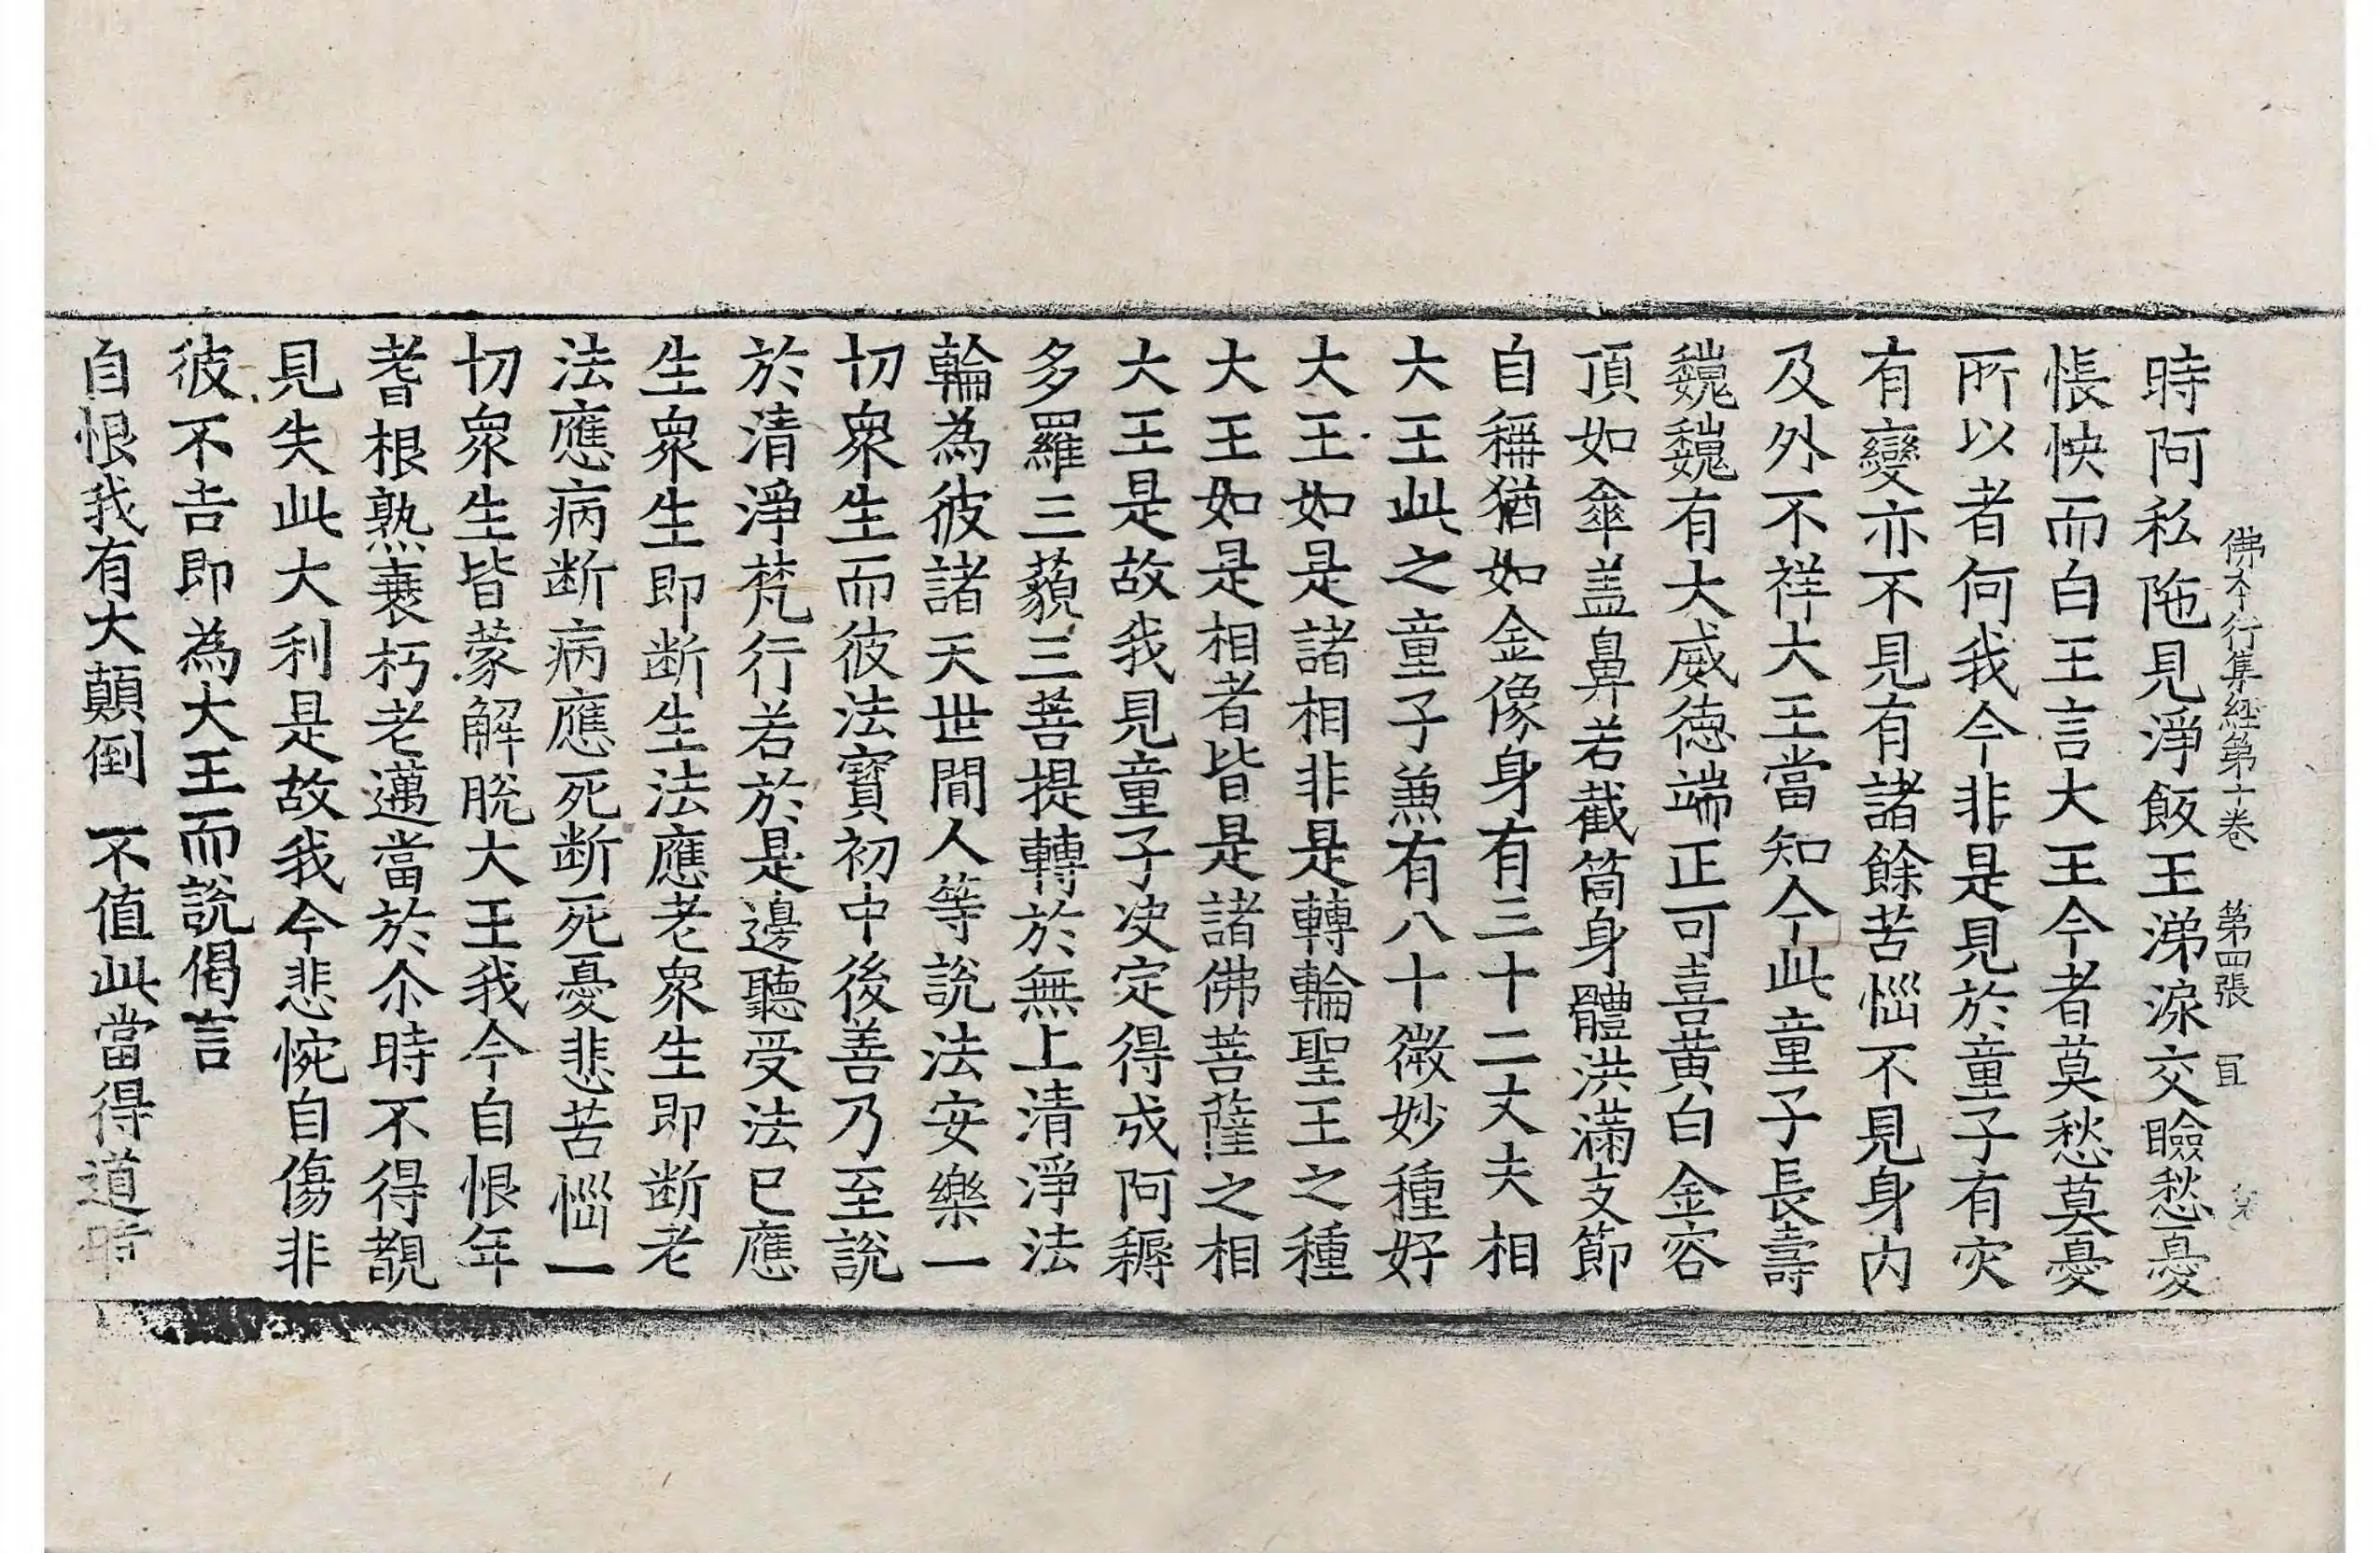 佛本行集經第十卷 第四張
時阿私陁見淨飯王涕淚交瞼愁憂
悵怏而白王言大王今者莫愁莫憂
所以者何我今非是見於童子有灾
有變亦不見有諸餘苦惱不見身內
及外不祥大王當知今此童子長壽
巍巍有大威徳端正可喜黃白金容
頂如傘盖鼻若截筒身體洪滿支節
自稱猶如金像身有三十二丈夫相
大王此之童子兼有八十微妙種好
大王如是諸相非是轉輪聖王之種
大王如是相者皆是諸佛菩薩之相
大王是故我見童子决定得成阿耨
多羅三藐三菩提轉於無上清淨法
輪為彼諸天世間人等說法安樂一
切衆生而彼法寶初中後善乃至說
於清淨梵行若於是邊聽受法已應
生衆生即断生法應老衆生即断老
法應病断病應死断死憂悲苦惱一
切衆生皆蒙解脫大王我今自恨年
耆根熟衰朽老邁當於尒時不得覩
見失此大利是故我今悲惋自傷非
彼不吉即為大王而說偈言
自恨我有大顛倒 不值此當得道時